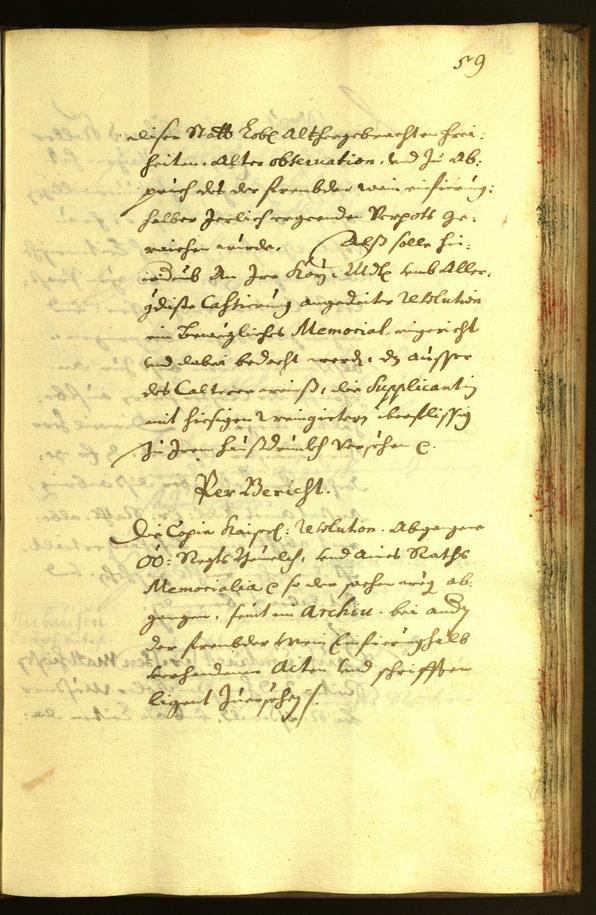 59
diser Statt Lobl: Althergebrachten Frei:
heiten, Alter observation, und zu Ab:
pruch des der frembder wein einfierung:
halber Jerlich ergeenden Verpots ge:
raichen wurde. Alß solle hin:
widerub An Ire Kay: Mtt: umb Aller:
gdiste Cassierung angedeiter resolution
ein Bewegliches Memorial, eingericht
und dabei bedacht werden, dz ausser
des Calterer weinß, die Supplicantin
mit hiesigen weingietern überflissig
zu Irem haußtrunckh Versehen etc.
Per Bericht.
Die Copia Kaiserl: resolution. Abgegangne
OÖ: Regts und Aines Raths
Memorialia etc so der sachen weg ab:
gangen, seint im Archiu. bei andern
der frembder Wein Einfierung halb
verhandenen Acten und schrifften
ligent zuersehen /.